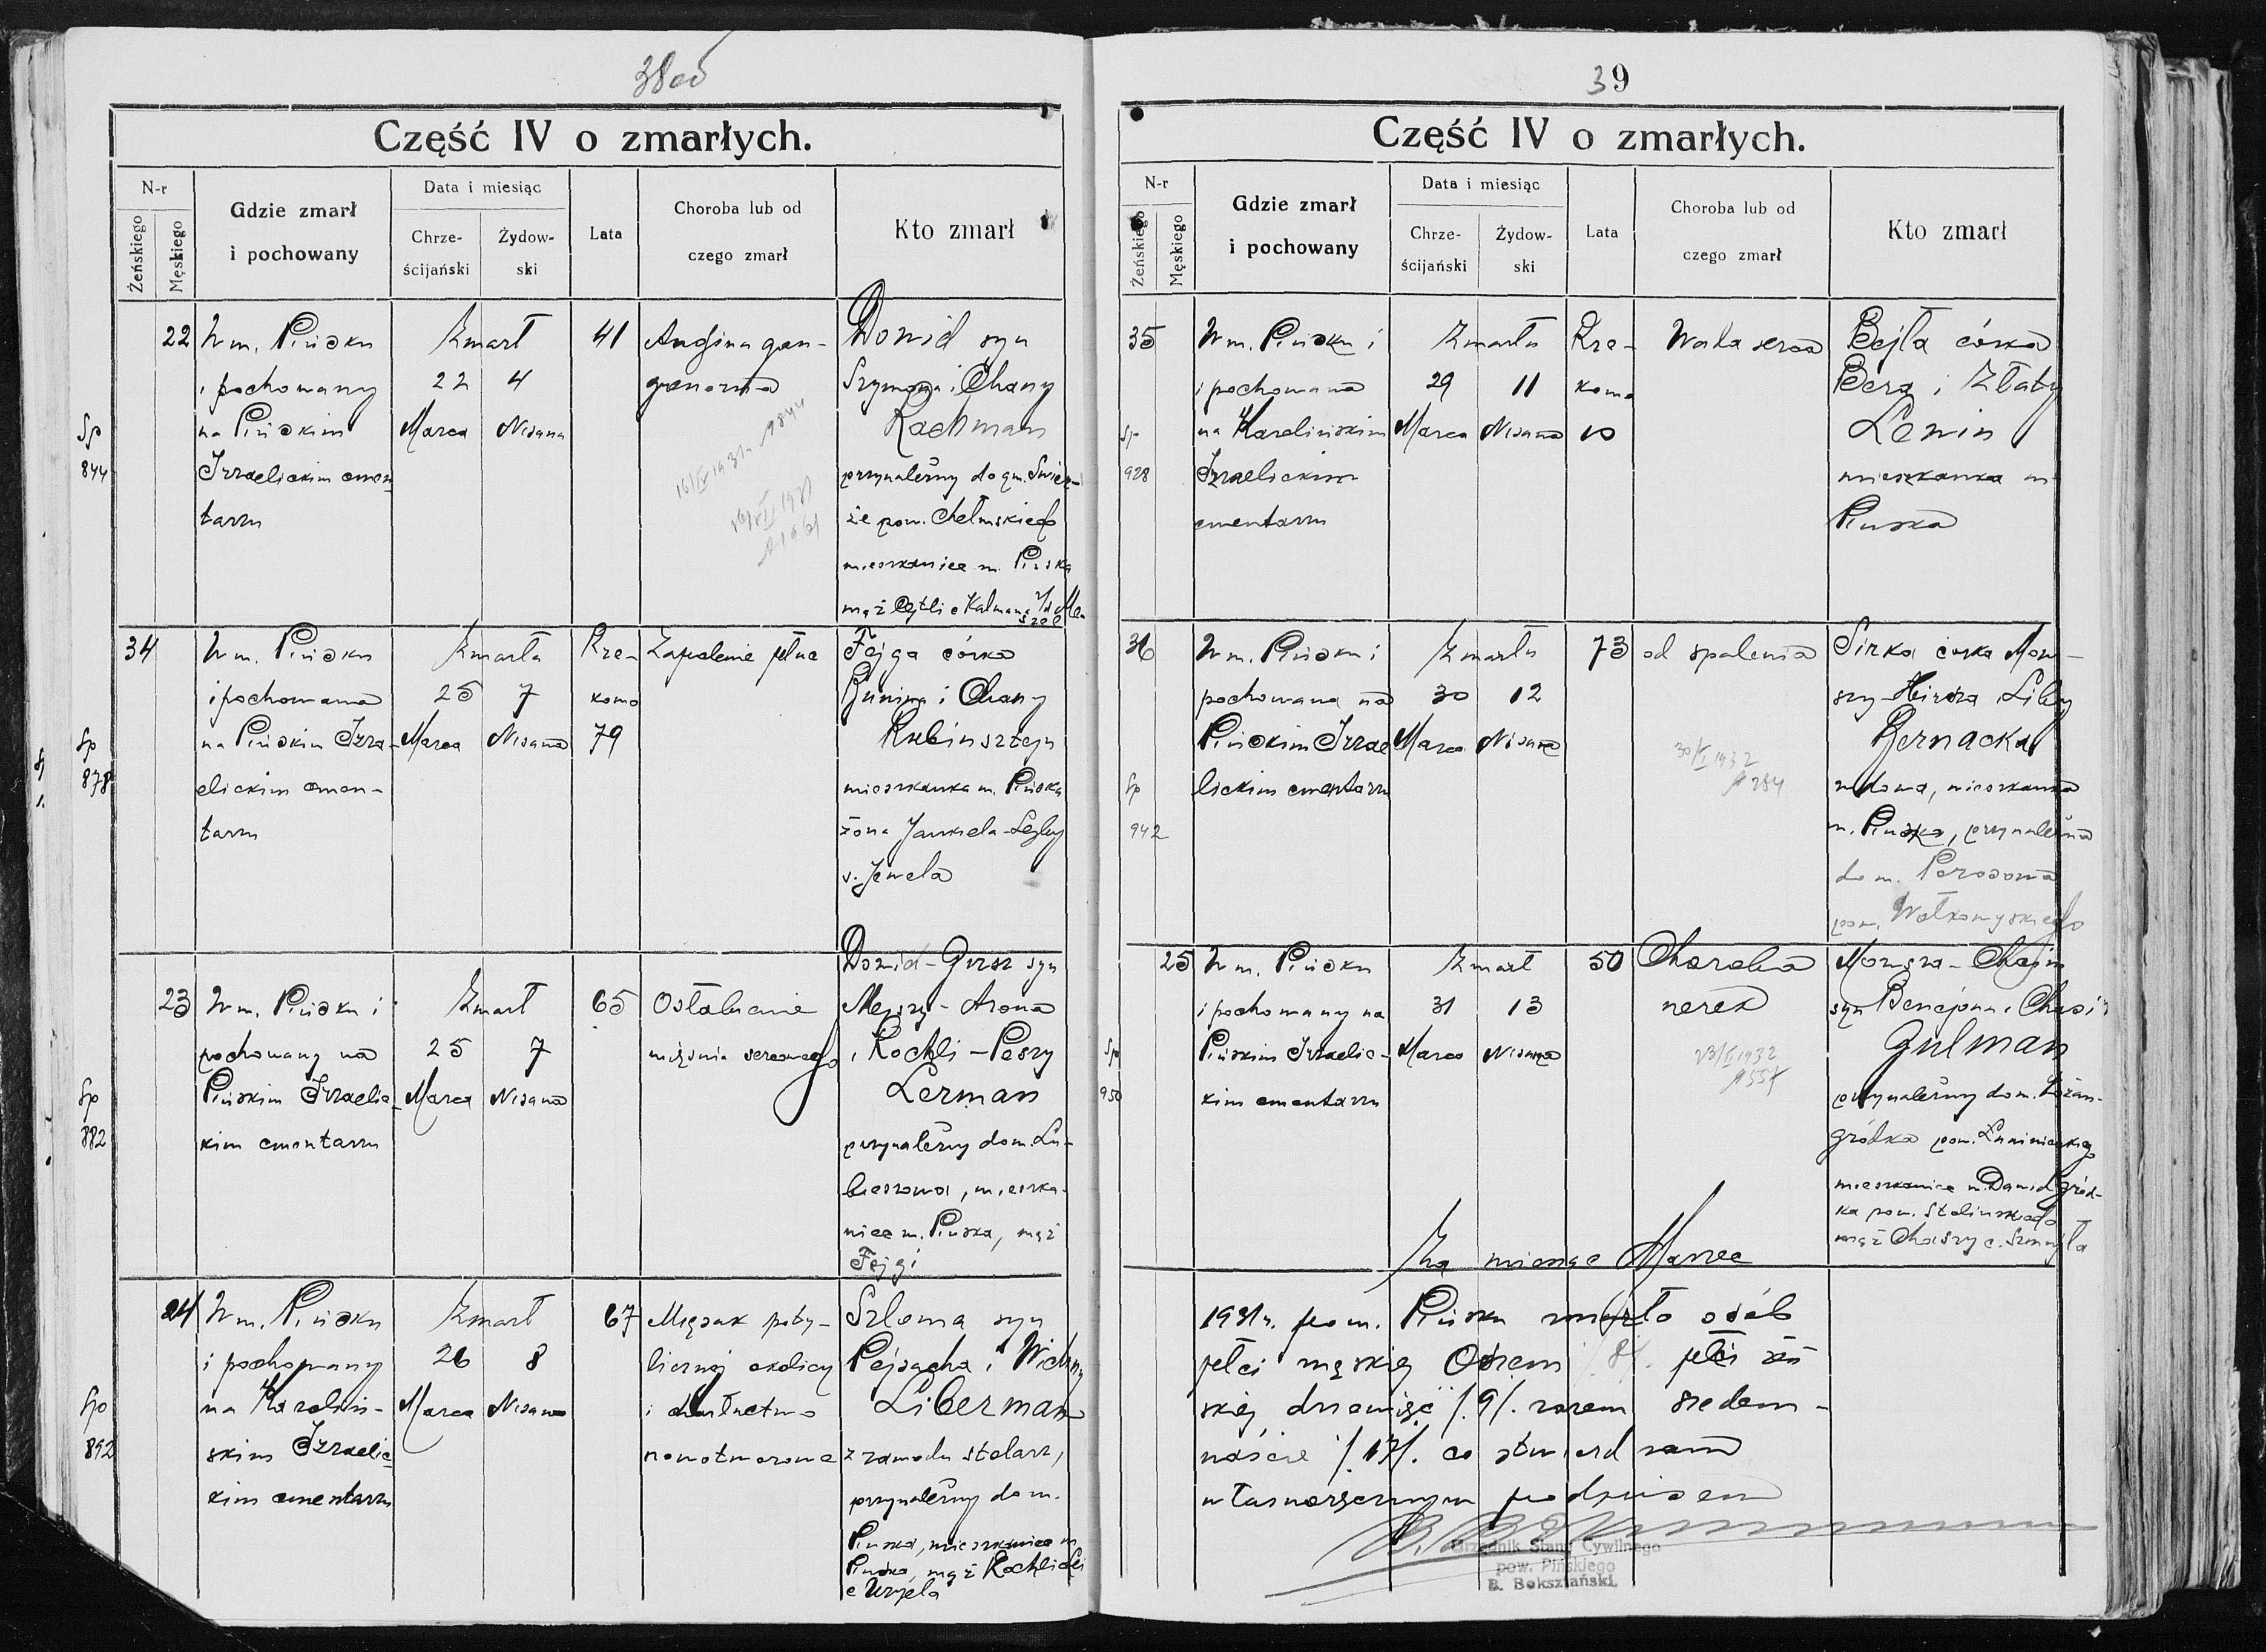 38
Część IV o zmarłych.
N-r
Żeńskiego
Męskiego
Gdzie zmarł
i pochowany
Data i miesiąc
Chrze-
ścijański
Żydow-
ski
Lata
Choroba lub od
czego zmarł
Kto zmarł
22
W m. Pińsku
i pochowany
na Pińskim
Izraelickim cmen
tarzu
Zmarł
22 4
Marca Nisana
41
Angina gan-
grenozna
Dowid syn
Szymona i Chany
Rachman
przynależny do gm. Świer-
że pow. Chełmskiego
mieszkaniec m. Pińska
mąż Cejtli c Kalmana
Sp
844
16/IV 1931 r. 1844
34
W m. Pińsku
i pochowana
na Pińskim Izra-
elickim cmen-
tarzu
Zmarła
25 7
Marca Nisana
Rze-
komo
79
Zapalenie płuc
Fejga córka
i Chany
Rubinsztejn
mieszkanka m. Pińska
żona Jankiela-Lejby
s. Jewela
Sp
878
23
W m. Pińsku i
pochowany na
Pińskim Izraelic-
kim cmentarzu
Zmarł
25 7
Marca Nisana
65
Osłabienie
mięśnia sercowego
Dowid-Girsz syn
Mejszy-Arona
i Rochli-Peszy
Lerman
przynależny do m. Lu-
bieszowa, mieszka-
niec m. Pińska, mąż
Fejgi
Sp
882
24
W m. Pińsku
i pochowany
na Karoliń-
skim Izraelic-
kim cmentarzu
Zmarł
26 8
Marca Nisana
67
Mięsak poty-
licznej okolicy
i charłactwo
nowotworowe
Szloma syn
Pejsacha i Wichny
Liberman
z zawodu stolarz,
przynależny do m.
Pińska, mieszkaniec m.
Pińska, mąż Rochli
c Uryela
Sp
892
39
Część IV o zmarłych.
N-r
Żeńskiego
Męskiego
Gdzie zmarł
i pochowany
Data i miesiąc
Chrze-
ścijański
Żydow-
ski
Lata
Choroba lub od
czego zmarł
Kto zmarł
35
W m. Pińsku i
i pochowana
na Karolińskim
Izraelickim
cmentarzu
Zmarła
29 11
Marca Nisana
Rze-
komo
60
Wada serca
Bejła córka
Bera i Złaty
Lenin
mieszkanka m
Pińska
Sp
928
36
W m. Pińsku i
pochowana na
Pińskim Izrae
lickim cmentarzu
Zmarła
30 12
Marca Nisana
73
od spalenia
Sirka córka Mow-
szy-Hirsza i Liby
Bernacka
wdowa, mieszkanka
m. Pińska, przynależna
do m. Porozowa
pow. Wołkowyskiego
Sp
942
30/I 1932
284
25
W m. Pińsku
i pochowany na
Pińskim Izraelic-
kim cmentarzu
Zmarł
31 13
Marca Nisana
50
Choroba
nerek
Mowsza-Chaim
syn Benejona i Chasi
Gulman
przynależny do m. Łożan-
gródka pow. Łuninieckiego
mieszkaniec m. Dawidgród-
ka pow. Stolińskiego
mąż Chaszy c. Szmujła
Sp
950
23/I 1932
Za miesiąc Marzec
1931 r. po m. Pińsku zmarło osób
płci męskiej Osiem /8/. płci żeń
skiej dziewięć /.9/. razem siedem-
naście /.17/. co stwierdzam
własnoręcznym podpisem
Urzędnik Stanu Cywilnego
pow. Pińskiego
B. Boksztański.